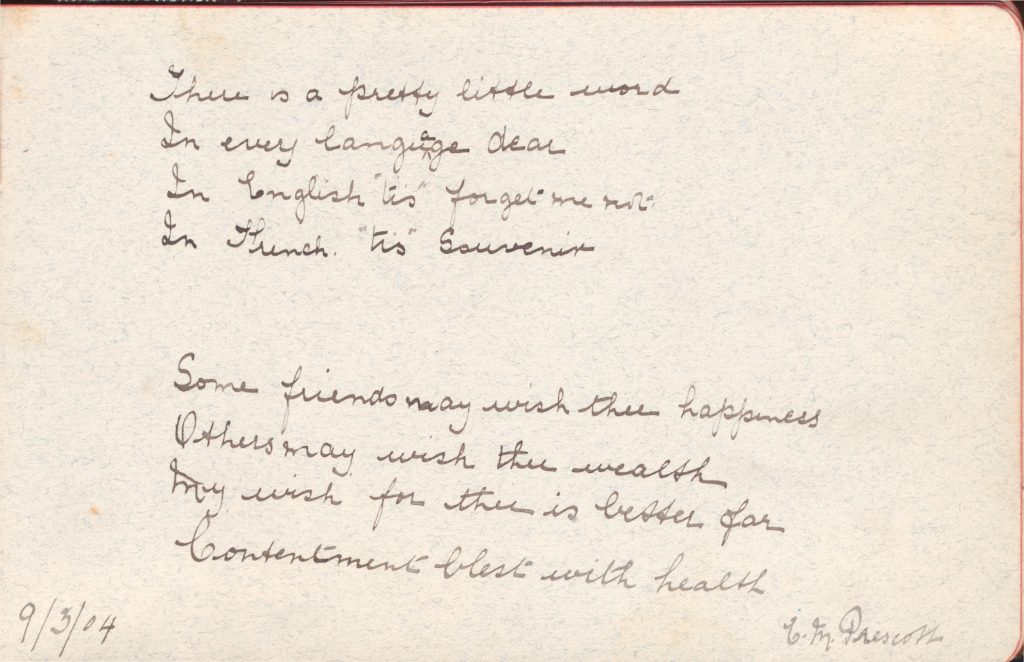 There is a pretty little word
In every language dear
In English "tis" forget me not
In French. "tis" Souvenir
Some friends may wish thee happiness
Others may wish thee wealth
My wish for thee is better far
Contentment blest with health
9/3/04
E. M. Prescott